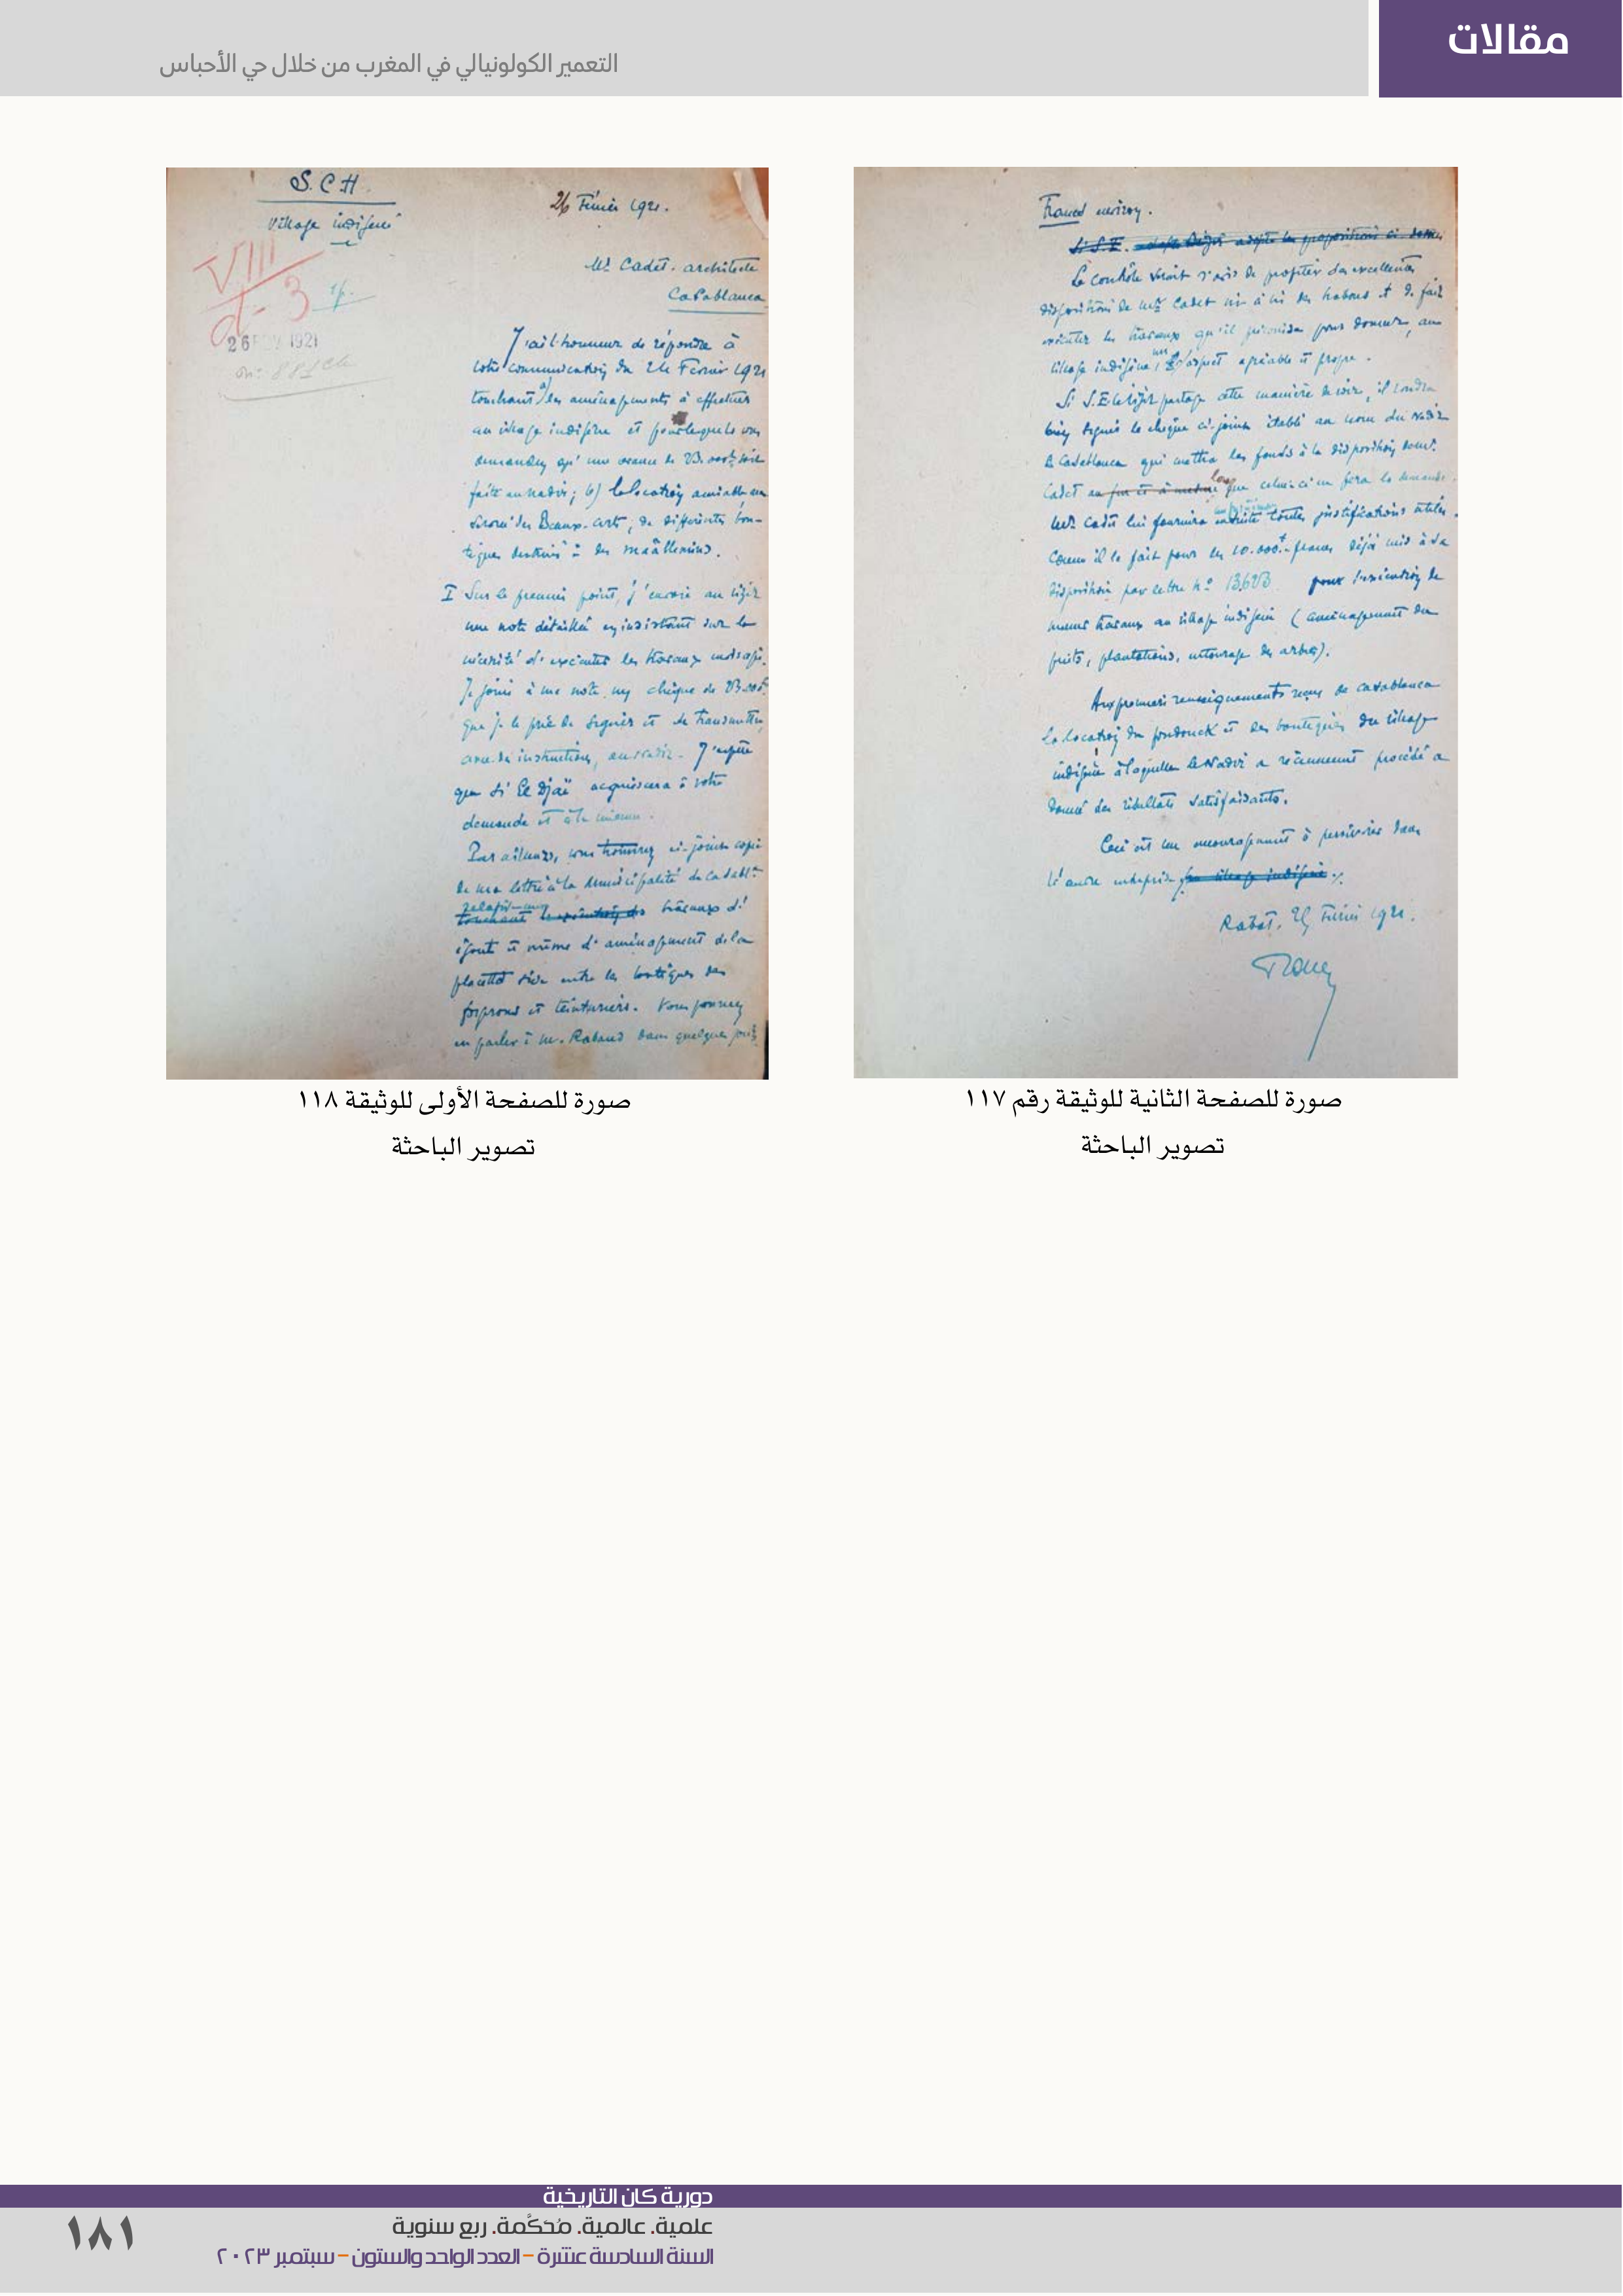 مقالات
التعمير الكولونيالي في المغرب من خلال حي الأحباس
Francs environ.
Le contrôle serait d'avis de profiter des excellentes
dispositions de Mr Cadet vis à vis des habous et de faire
exécuter les travaux qu'il préconise pour donner, au
village indigène, un aspect agréable et propre.
Si S.E. le Vizir partage cette manière de voir, il voudra
bien signer le chèque ci-joint établi au nom du nadir
de Casablanca qui mettra les fonds à la disposition de Mr
Cadet au fur et à mesure que celui-ci en fera la demande.
Mr Cadet lui fournira ensuite toutes justifications utiles
comme il le fait pour les 10.000 francs déjà mis à sa
disposition par lettre no 13623 pour l'exécution de
menus travaux au village indigène (aménagement du
puits, plantations, entourage des arbres).
Aux premiers renseignements reçus de Casablanca
la location du fondouck et des boutiques du village
indigène à laquelle le Nadir a récemment procédé a
donné des résultats satisfaisants.
Ceci est un encouragement à persévérer dans
l'œuvre entreprise
Rabat, 25 Février 1921.
صورة للصفحة الثانية للوثيقة رقم ١١٧
تصوير الباحثة
S. C H
Village indigène
26 Février 1921.
VIII
d-3
26 FEV 1921
no 881 Ch
Mr Cadet. architecte
Casablanca
J'ai l'honneur de répondre à
votre communication du 24 Février 1921
touchant a) les aménagements à effectuer
au village indigène et pour lesquels vous
demandez qu'une avance de 23.000f soit
faite au nadir; b) la location amiable au
Service des Beaux-Arts, de différentes bou-
tiques destinées à des maâllemins.
I Sur le premier point, j'envoie au Vizir
une note détaillée en insistant sur la
nécessité d'exécuter les travaux envisagés.
Je joins à ma note un chèque de 23.000f
que je le prie de signer et de transmettre,
avec des instructions, au nadir. J'espère
que Si El Djaï acquiescera à votre
demande et à la mienne.
Par ailleurs, vous trouverez ci-joint copie
de ma lettre à la Municipalité de Casabl.ca
relative aux
touchant travaux d'
égout et même d'aménagement de la
placette sise entre les boutiques des
forgerons et teinturiers. Vous pourrez
en parler à M. Rabaud dans quelques jours
صورة للصفحة الأولى للوثيقة ١١٨
تصوير الباحثة
دورية كان التاريخية
علمية. عالمية. مُحكَّمة. ربع سنوية
السنة السادسة عشرة – العدد الواحد والستون – سبتمبر ٢٠٢٣
١٨١